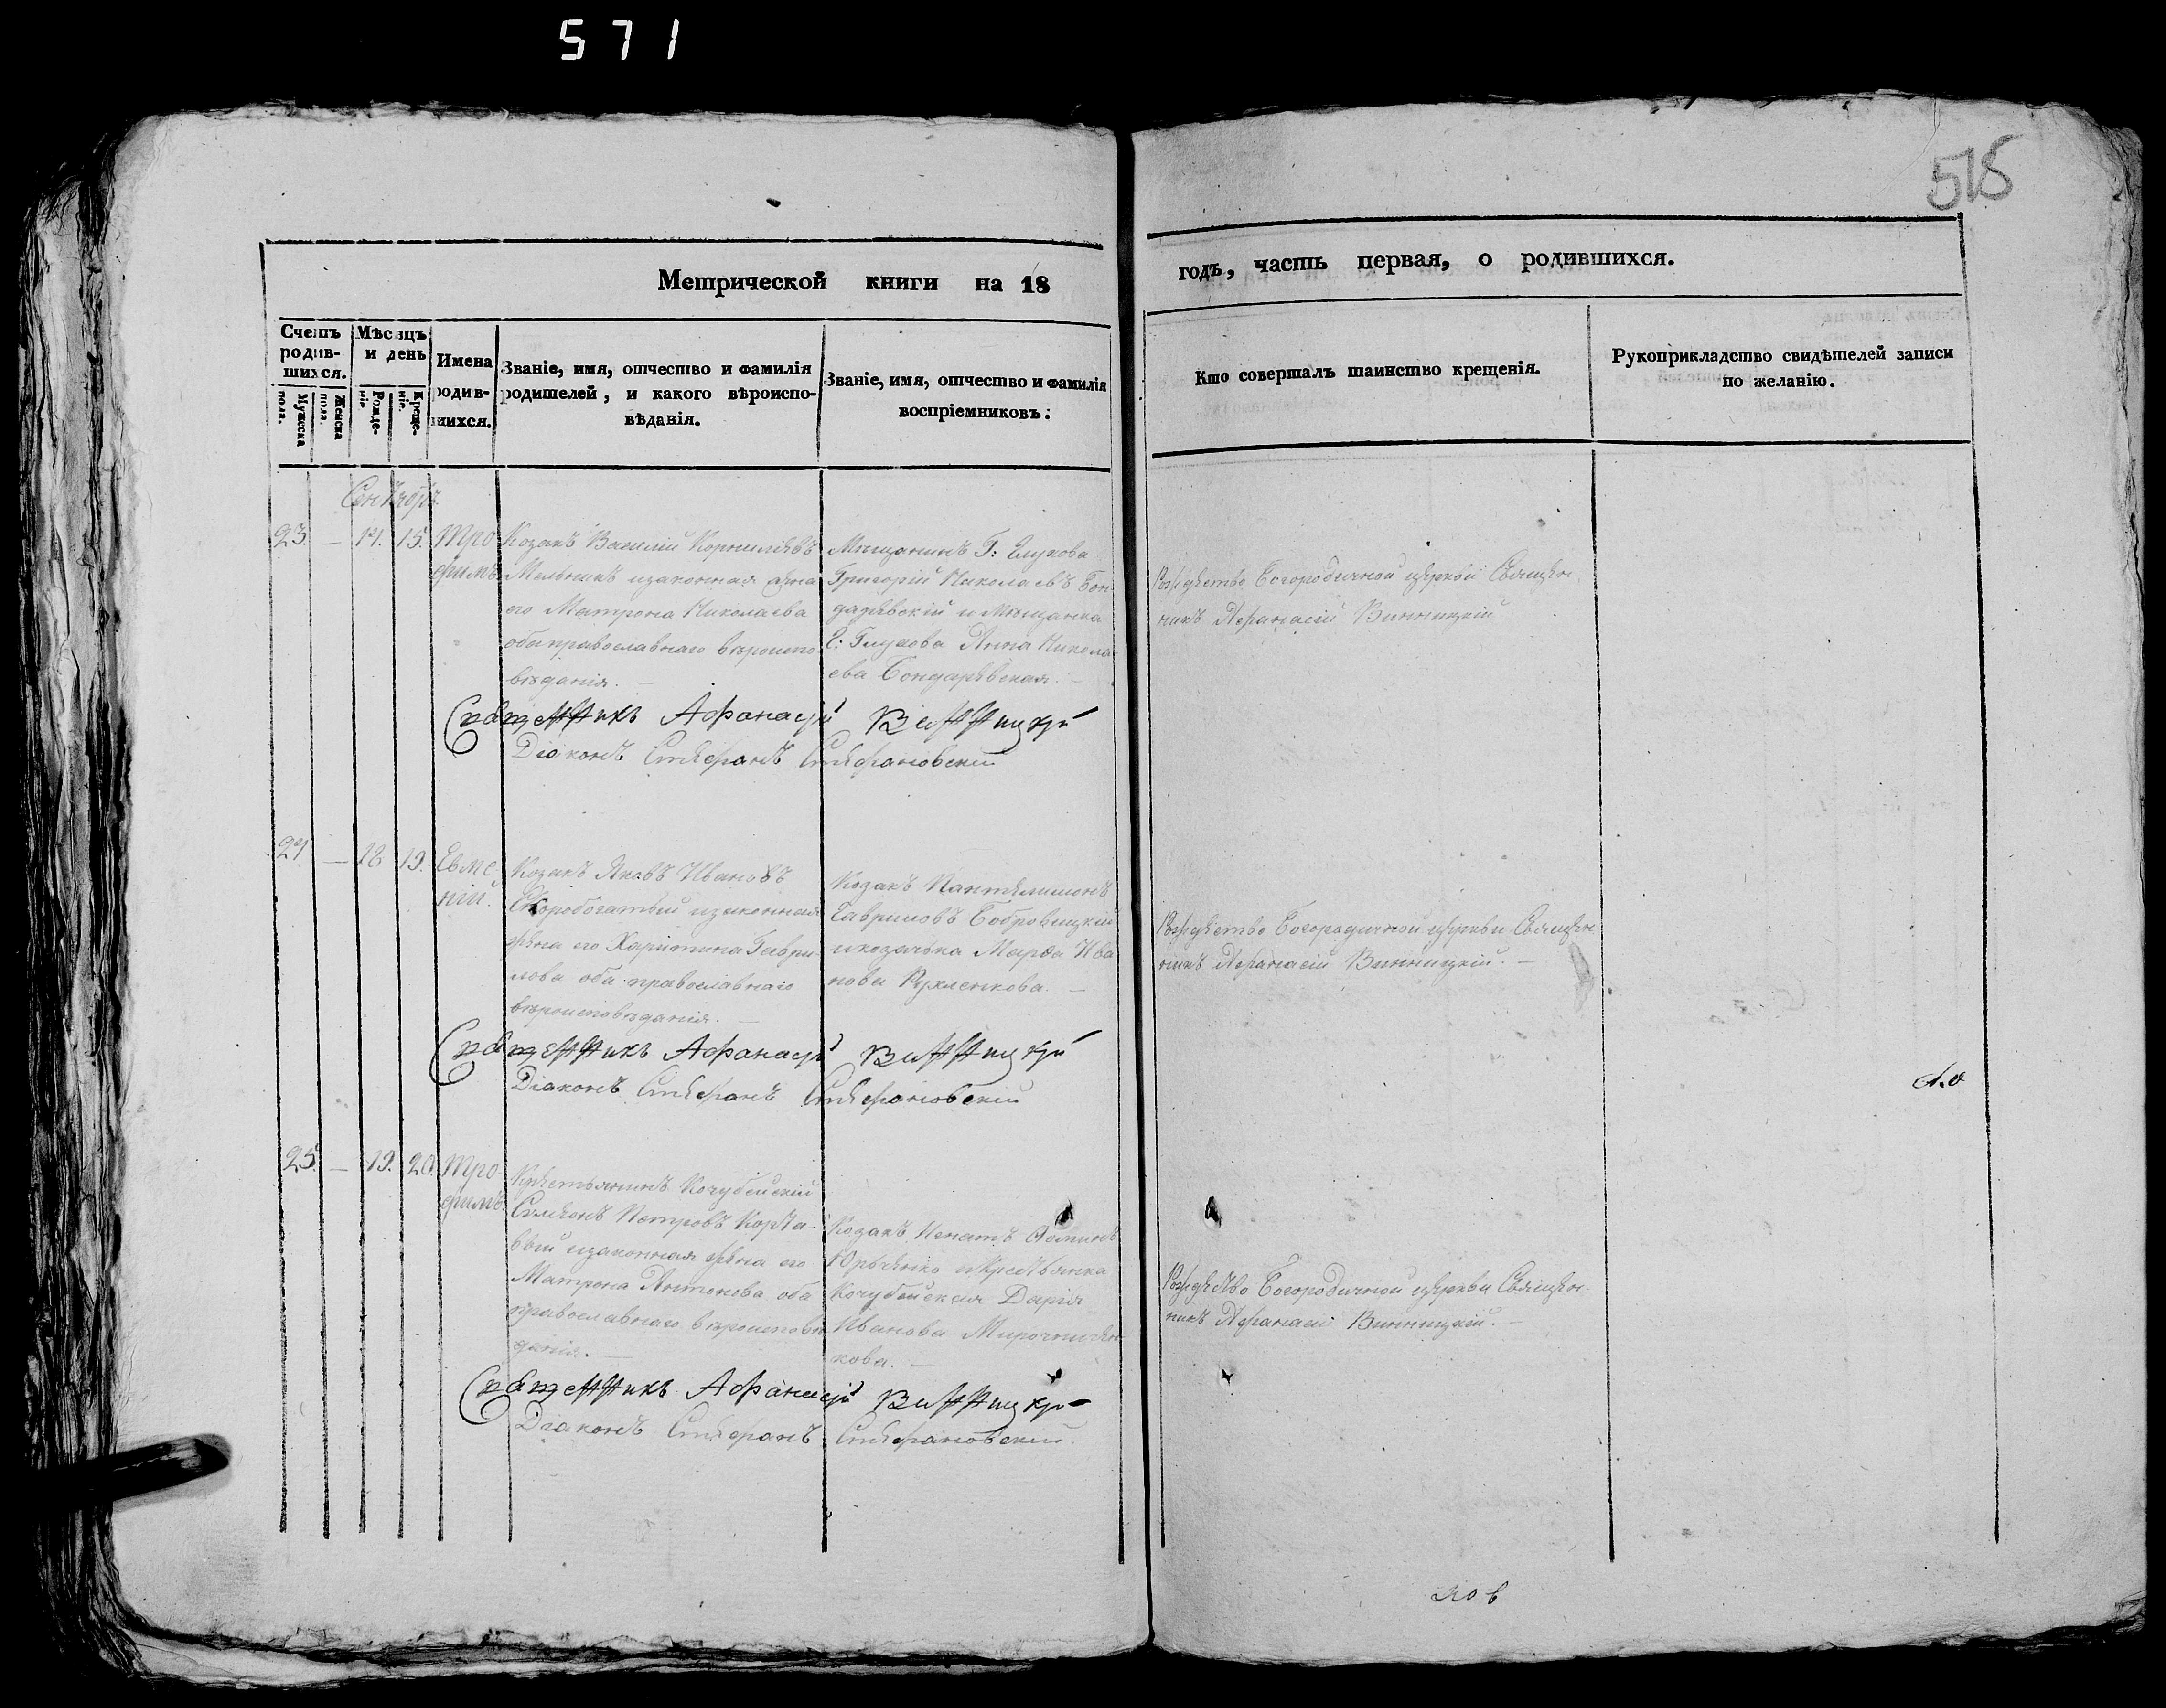 571
515
Метрической книги на 18
годъ, часть первая, о родившихся.
Счетъ родив-шихся.
Мужеска пола.
Женска пола.
Мѣсяцъ и день
Рожде-нія.
Креще-нія.
Имена родив-шихся.
Званіе, имя, отчество и фамилія
родителей, и какого вѣроиспо-
вѣданія.
Званіе, имя, отчество и фамилія
воспріемниковъ.
Кто совершалъ таинство крещенія.
Рукоприкладство свидѣтелей записи
по желанію.
Сентябрь
23. — 14. 15. Тро
фимъ
Козакъ Василій Корниліевъ
Мельникъ изаконная жена
его Матрона Николаева
оба православнаго вѣроиспо
вѣданія. —
Мѣщанинъ Г: Глухова
Григорій Николаевъ Бон
даревскій и Мѣщанка
Г: Глухова Анна Никола
ева Бондаревская. —
Рождество Богородичной церкви Священ
никъ Афанасій Винницкій
Священникъ Афанасій Винницкій
Діаконъ Стефанъ Стефановскій
24 — 18 19. Евме
ній.
Козакъ Яковъ Ивановъ
Скоробогатый изаконная
жена его Харитина Гаври
лова оба православнаго
вѣроисповѣданія. —
Козакъ Пантелимонъ
Гавриловъ Бобровицкій
икозачька Марѳа Ива
нова Рухленкова. —
Рождество Богородичной церкви Священ
никъ Афанасій Винницкій. —
Священникъ Афанасій Винницкій
Діаконъ Стефанъ Стефановскій
25. — 19. 20. Тро
фимъ.
Крестьянинъ Кочубейскій
Симеонъ Петровъ Корѧ
вый изаконная жена его
Матрона Антонова оба
православнаго вѣроисповѣ
данія. —
Козакъ Игнатъ
Юрченко икрестьянка
Кочубейская Дарія
Иванова Мирошничен
кова. —
Рождество Богородичной церкви Священ
никъ Афанасій Винницкій. —
Священникъ Афанасій Винницкій
Діаконъ Стефанъ Стефановскій